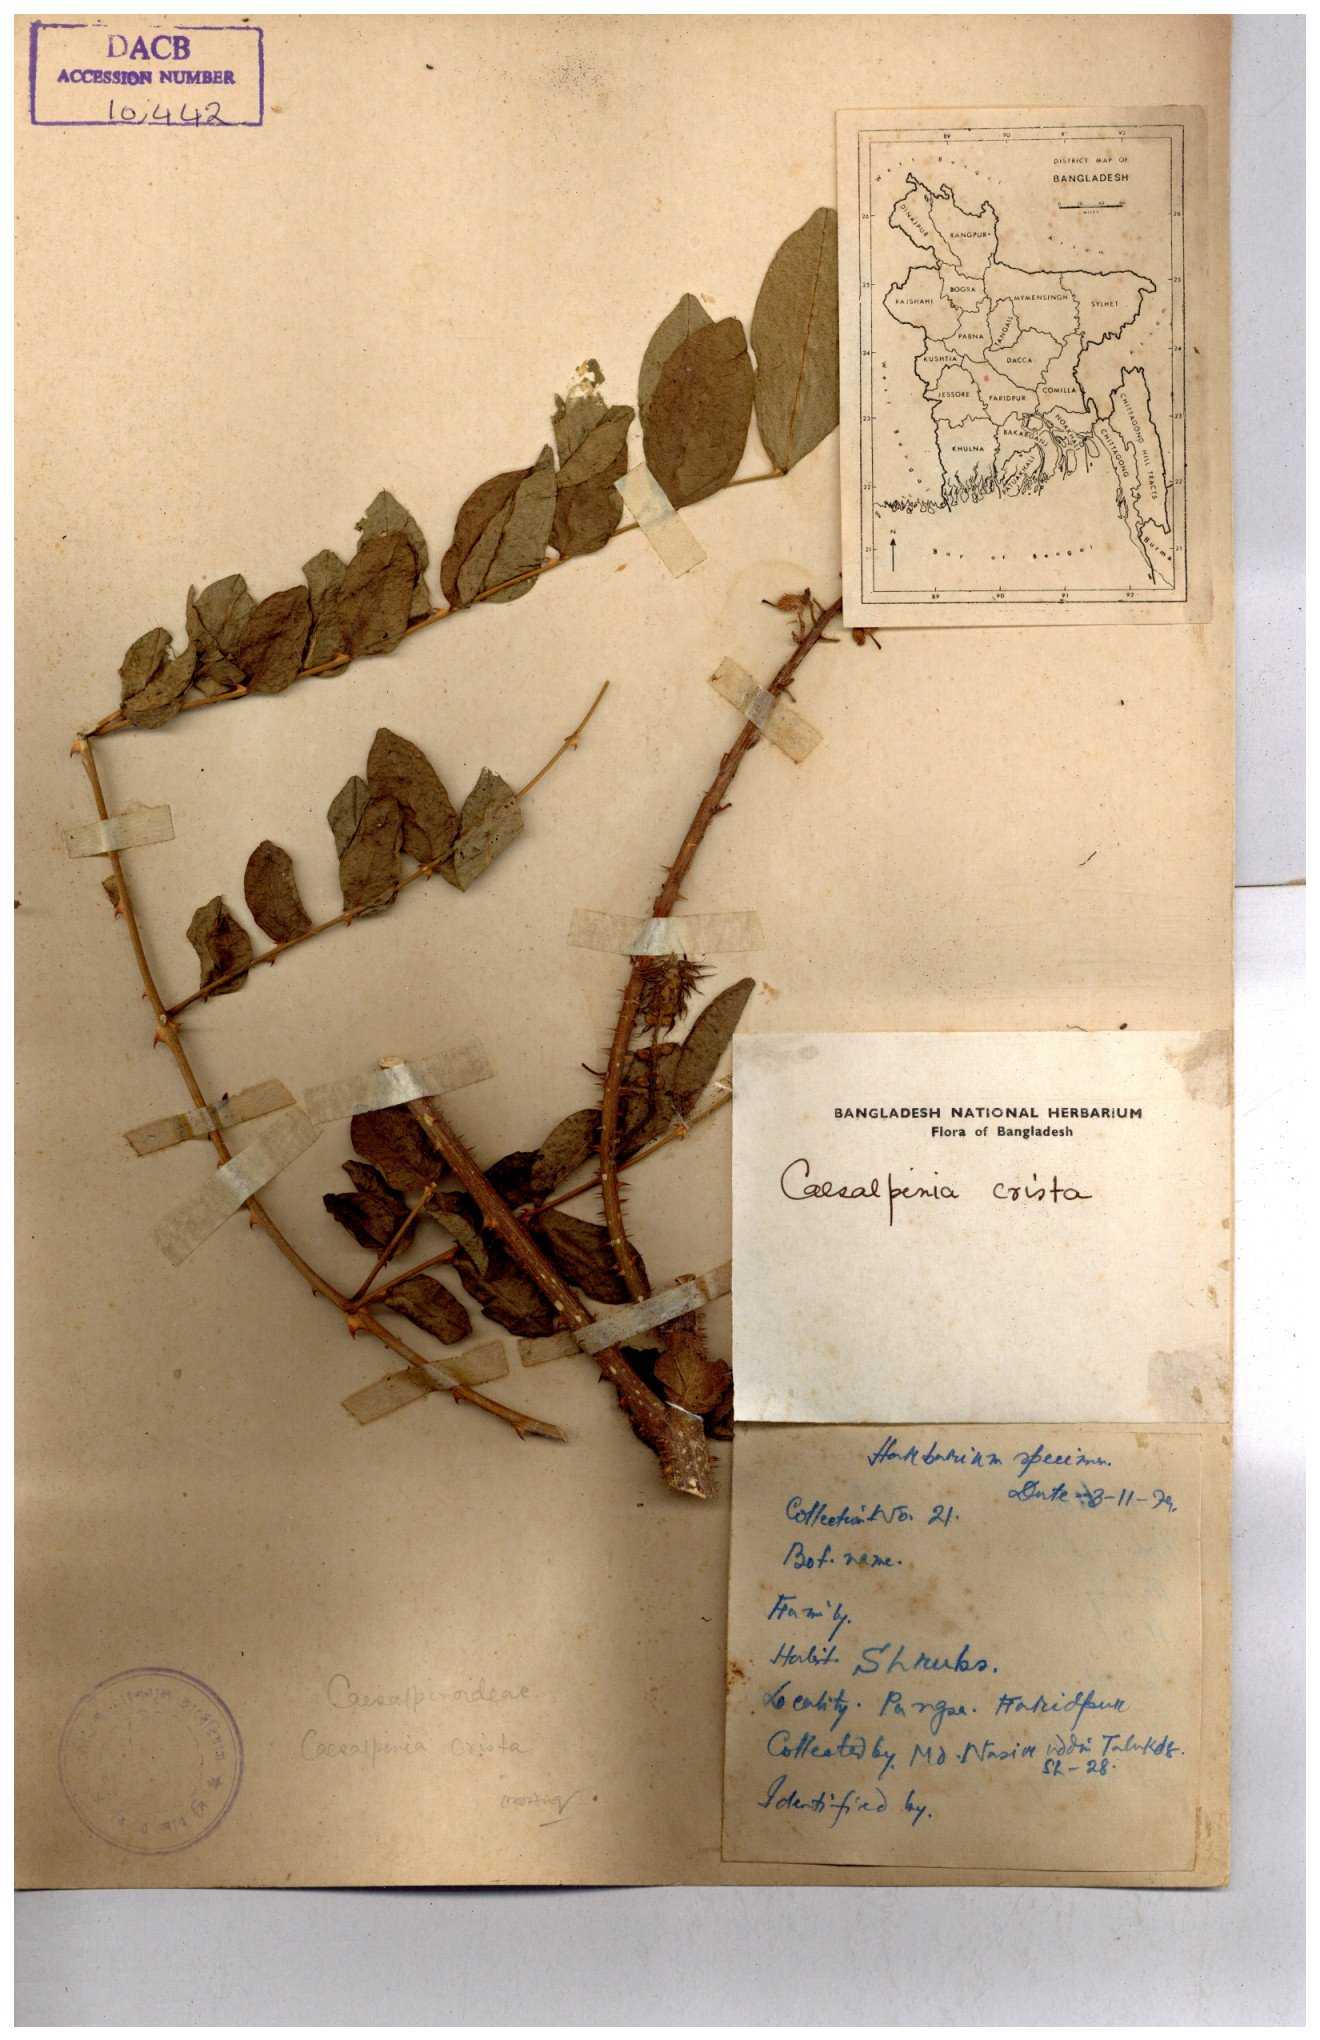 DACB
ACCESSION NUMBER
10,442
DISTRICT MAP OF
BANGLADESH
MILES
DINAJPUR
RANGPUR
BOGRA
RAJSHAHI
MYMENSINGH
SYLHET
TANGAIL
PABNA
KUSHTIA
DACCA
JESSORE
FARIDPUR
COMILLA
KHULNA
BAKARGANJ
NOAKHALI
PATUAKHALI
CHITTAGONG
CHITTAGONG HILL TRACTS
Burma
Bay of Bengal
BANGLADESH NATIONAL HERBARIUM
Flora of Bangladesh
Caesalpinia crista
Harbarium specimen.
Date 3-11-74.
Collection No. 21.
Bot. name.
Family.
Habit. Shrubs.
Locality. Pangsa. Faridpur
Collected by. Md. Nasir uddin Talukdr.
SL-28.
Identified by.
Caesalpinoideae
Caesalpinia crista